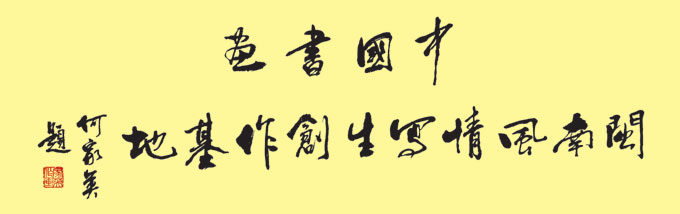 中國書畫
閩南風情寫生創作基地
何家英
題